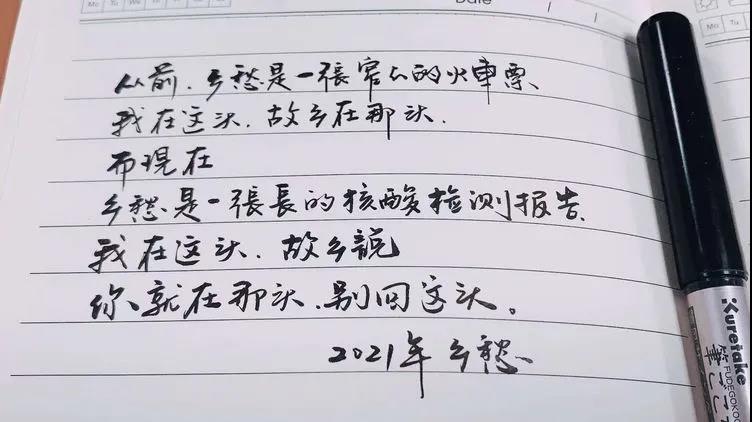 Mo Tu We
Date / /
从前，乡愁是一張窄窄的火車票、
我在这头，故乡在那头．
而現在
乡愁是一張長長的核酸检测报告、
我在这头．故乡說
你就在那头、别回这头。
2021年 乡愁、
Kuretake
FUDEGOKOC
筆ごこ